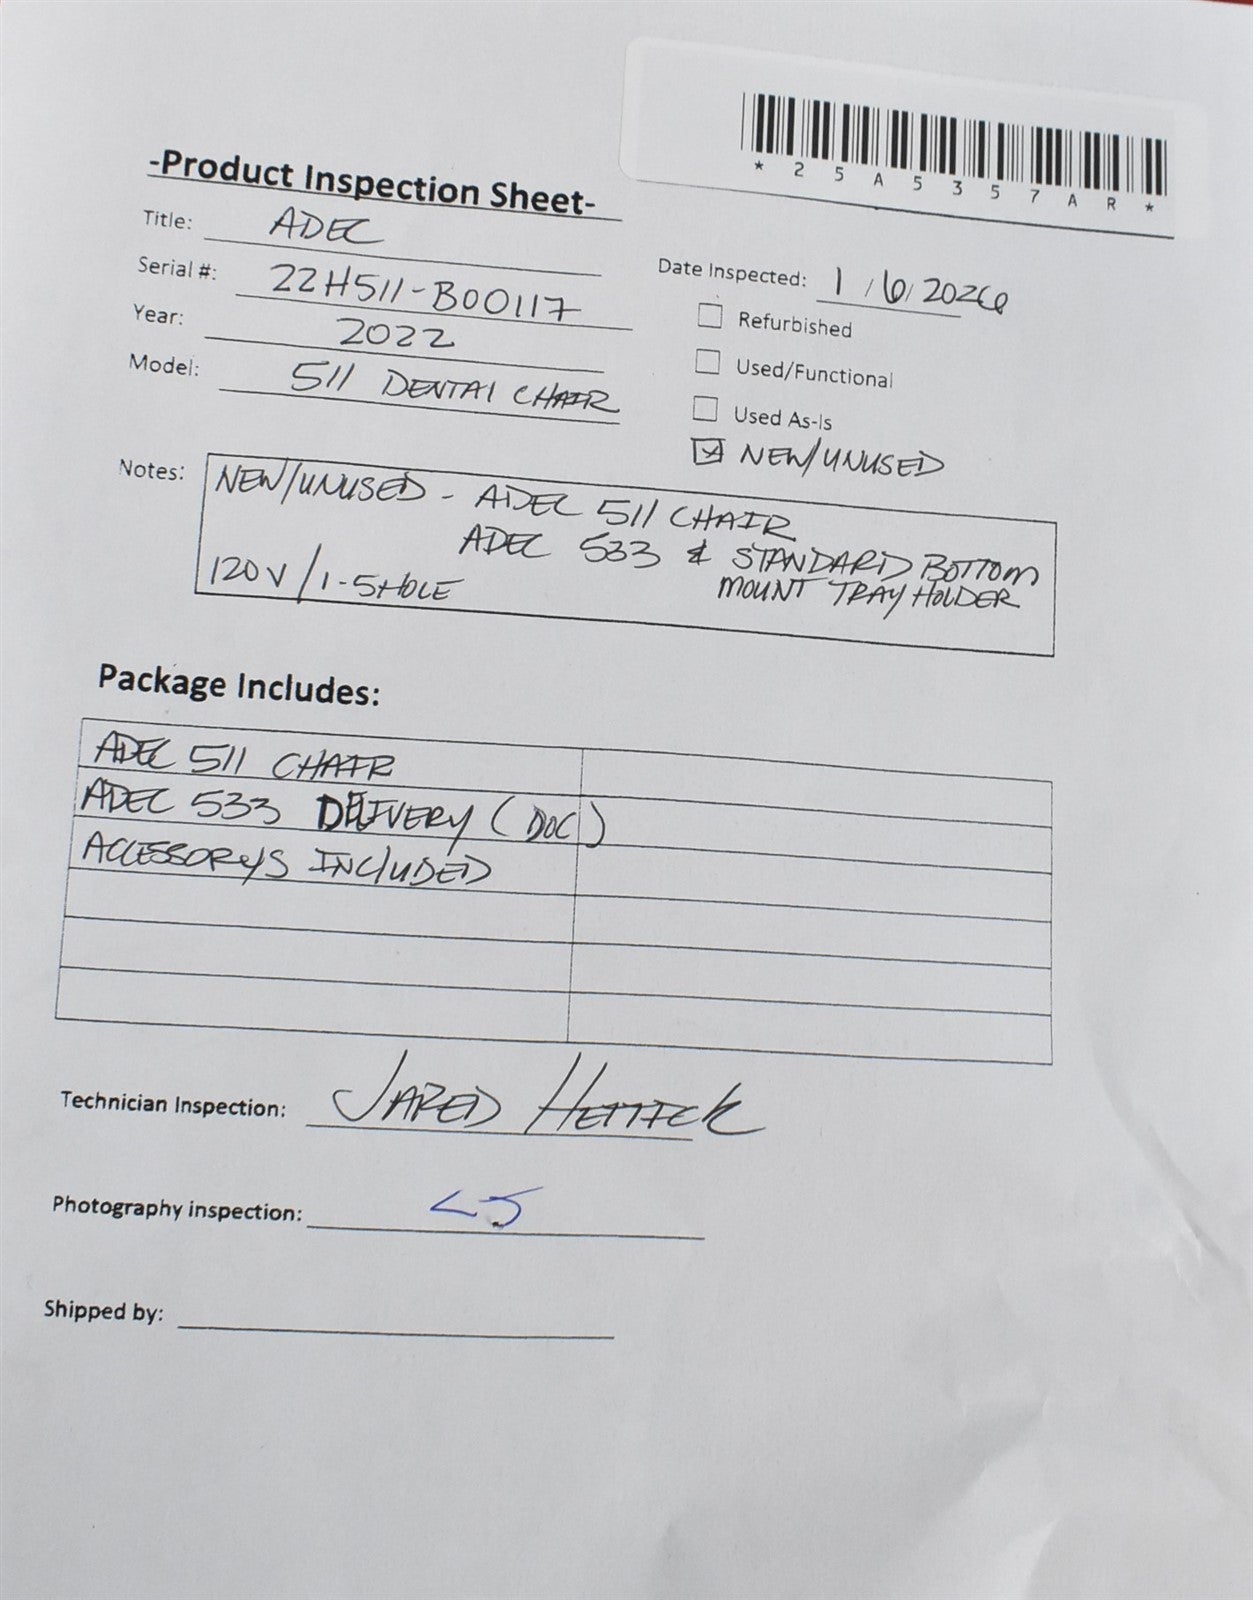 *25A5357AR*
-Product Inspection Sheet-
Title: ADEC
Serial #: 22H511-B00117
Year: 2022
Model: 511 DENTAL CHAIR
Date Inspected: 1/6/2026
Refurbished
Used/Functional
Used As-Is
NEW/UNUSED
Notes: NEW/UNUSED - ADEC 511 CHAIR
ADEC 533 & STANDARD BOTTOM
MOUNT TRAY HOLDER
120V/1-5HOLE
Package Includes:
ADEC 511 CHAIR
ADEC 533 DELIVERY (DOC)
ACCESSORYS INCLUDED
Technician Inspection: JARED HETTICK
Photography inspection:
Shipped by: